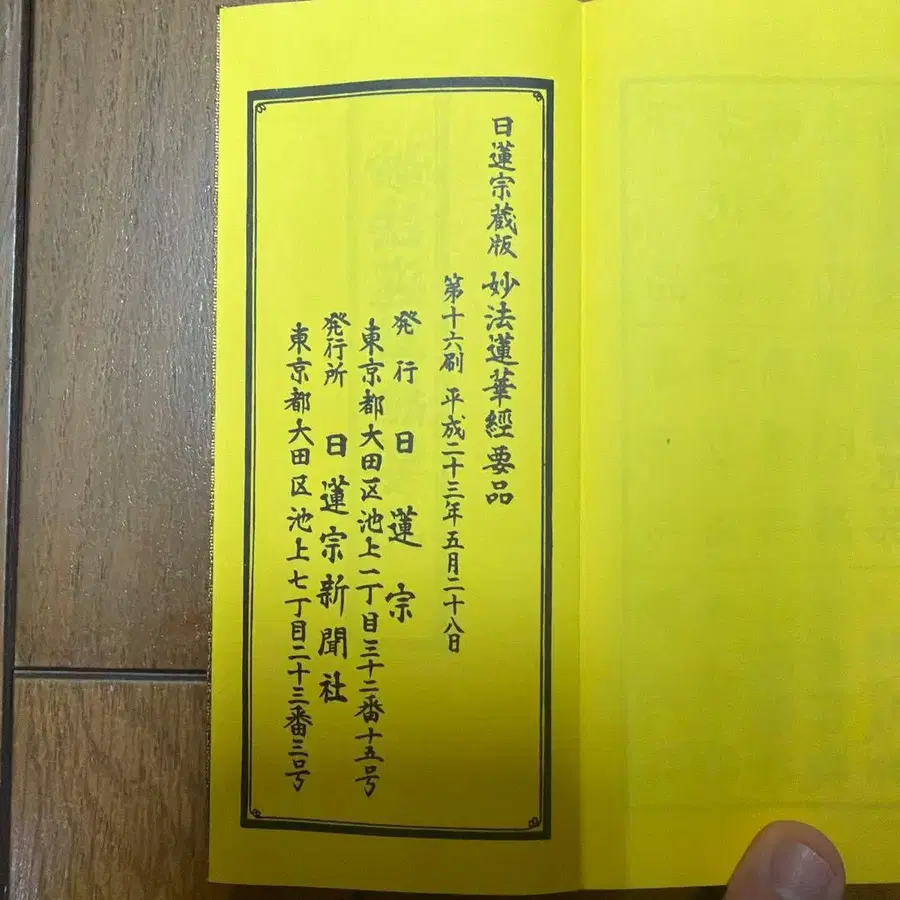 日蓮宗蔵版 妙法蓮華經要品
第十六刷 平成二十三年五月二十八日
発行 日蓮宗
東京都大田区池上一丁目三十二番十五号
発行所 日蓮宗新聞社
東京都大田区池上七丁目二十三番三号